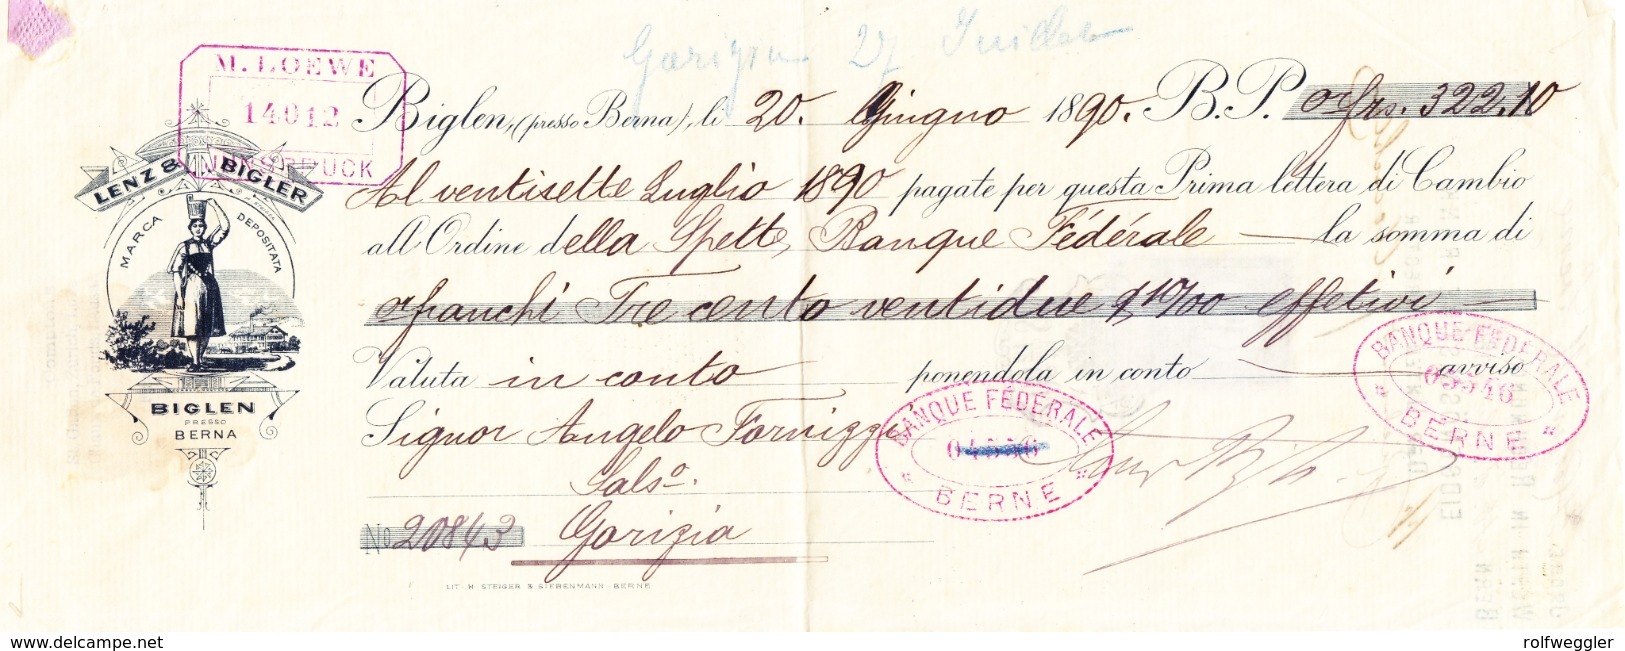 Gorizia 27 Juillet
M. LOEWE
14012
INNSBRUCK
Biglen, (presso Berna), li 20. Giugno 1890. B.P. frs. 322.10
LENZ & BIGLER
MARCA DEPOSITATA
BIGLEN
PRESSO
BERNA
Al ventisette Luglio 1890 pagate per questa Prima lettera di Cambio
all'Ordine della Spett. Banque Fédérale la somma di
franchi Trecento ventidue & 10/00 effetivi
Valuta in conto ponendola in conto avviso
Signor Angelo Fornizzi
Salso.
No 20843 Gorizia
BANQUE FÉDÉRALE
BERNE
BANQUE FÉDÉRALE
BERNE
LIT. H. STEIGER & SIEBENMANN - BERNE
www.delcampe.net
rolfweggler